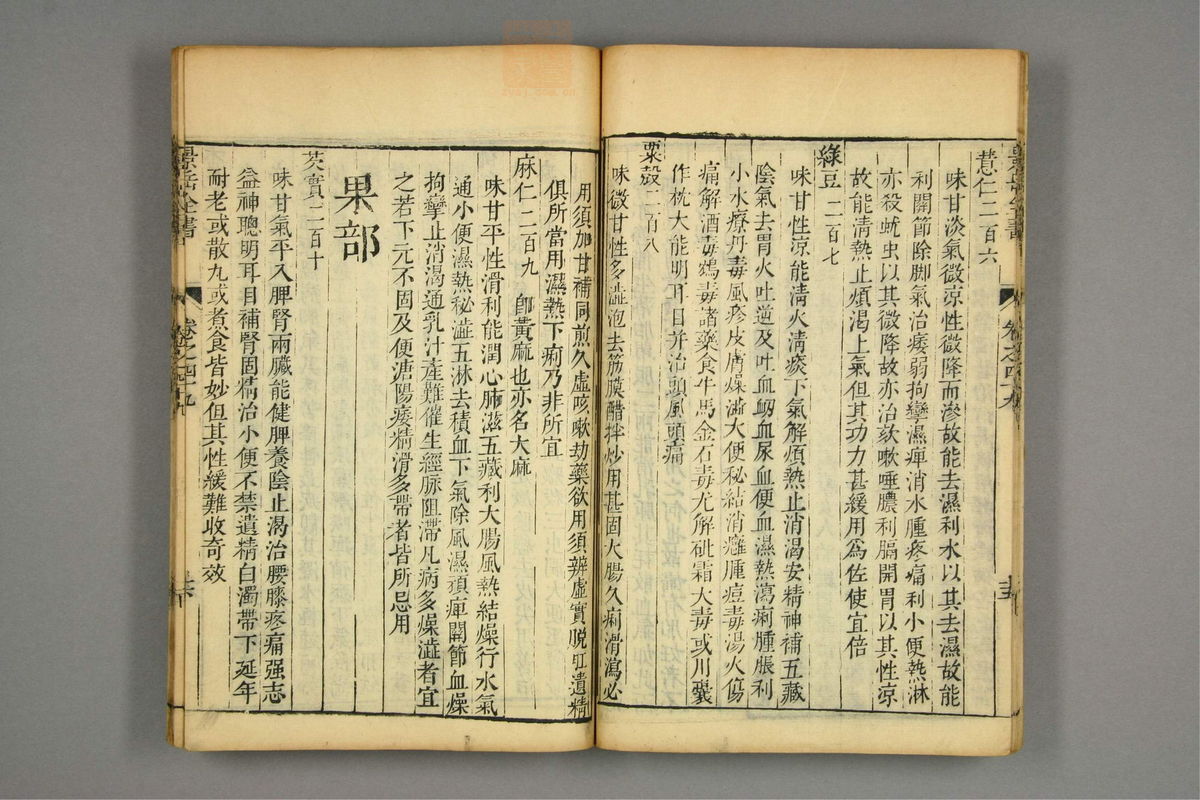 景岳全書
卷之四十九
苢仁二百六
味甘淡氣微涼性微降而滲故能去濕利水以其去濕故能
利關節除脚氣治痿弱拘攣濕痺消水腫疼痛利小便熱淋
亦殺蚘虫以其微降故亦治欬嗽唾膿利膈開胃以其性涼
故能清熱止煩渴上氣但其功力甚緩用爲佐使宜倍
綠豆二百七
味甘性涼能清火清痰下氣解煩熱止消渴安精神補五藏
陰氣去胃火吐逆及吐血衂血尿血便血濕熱瀉痢腫脹利
小水療丹毒風疹皮膚燥澁大便秘結消癰腫痘毒湯火傷
痛解酒毒鴆毒諸藥食牛馬金石毒尤解砒霜大毒或川囊
作枕大能明耳目并治頭風頭痛
粟殼二百八
味微甘性多澁泡去筋膜醋拌炒用甚固大腸久痢滑瀉必
用須加甘補同煎久虛咳嗽劫藥欲用須辨虛實脫肛遺精
俱所當用濕熱下痢乃非所宜
麻仁二百九 卽黃麻也亦名大麻
味甘平性滑利能潤心肺滋五藏利大腸風熱結燥行水氣
通小便濕熱秘澁五淋去積血下氣除風濕頑痺關節血燥
拘攣止消渴通乳汁產難催生經脉阻滯凡病多燥澁者宜
之若下元不固及便溏陽痿精滑多帶者皆所忌用
果部
芡實二百十
味甘氣平入脾腎兩臟能健脾養陰止渴治腰膝疼痛强志
益神聰明耳目補腎固精治小便不禁遺精白濁帶下延年
耐老或散丸或煮食皆妙但其性緩難收奇效
景岳全書
卷之四十九